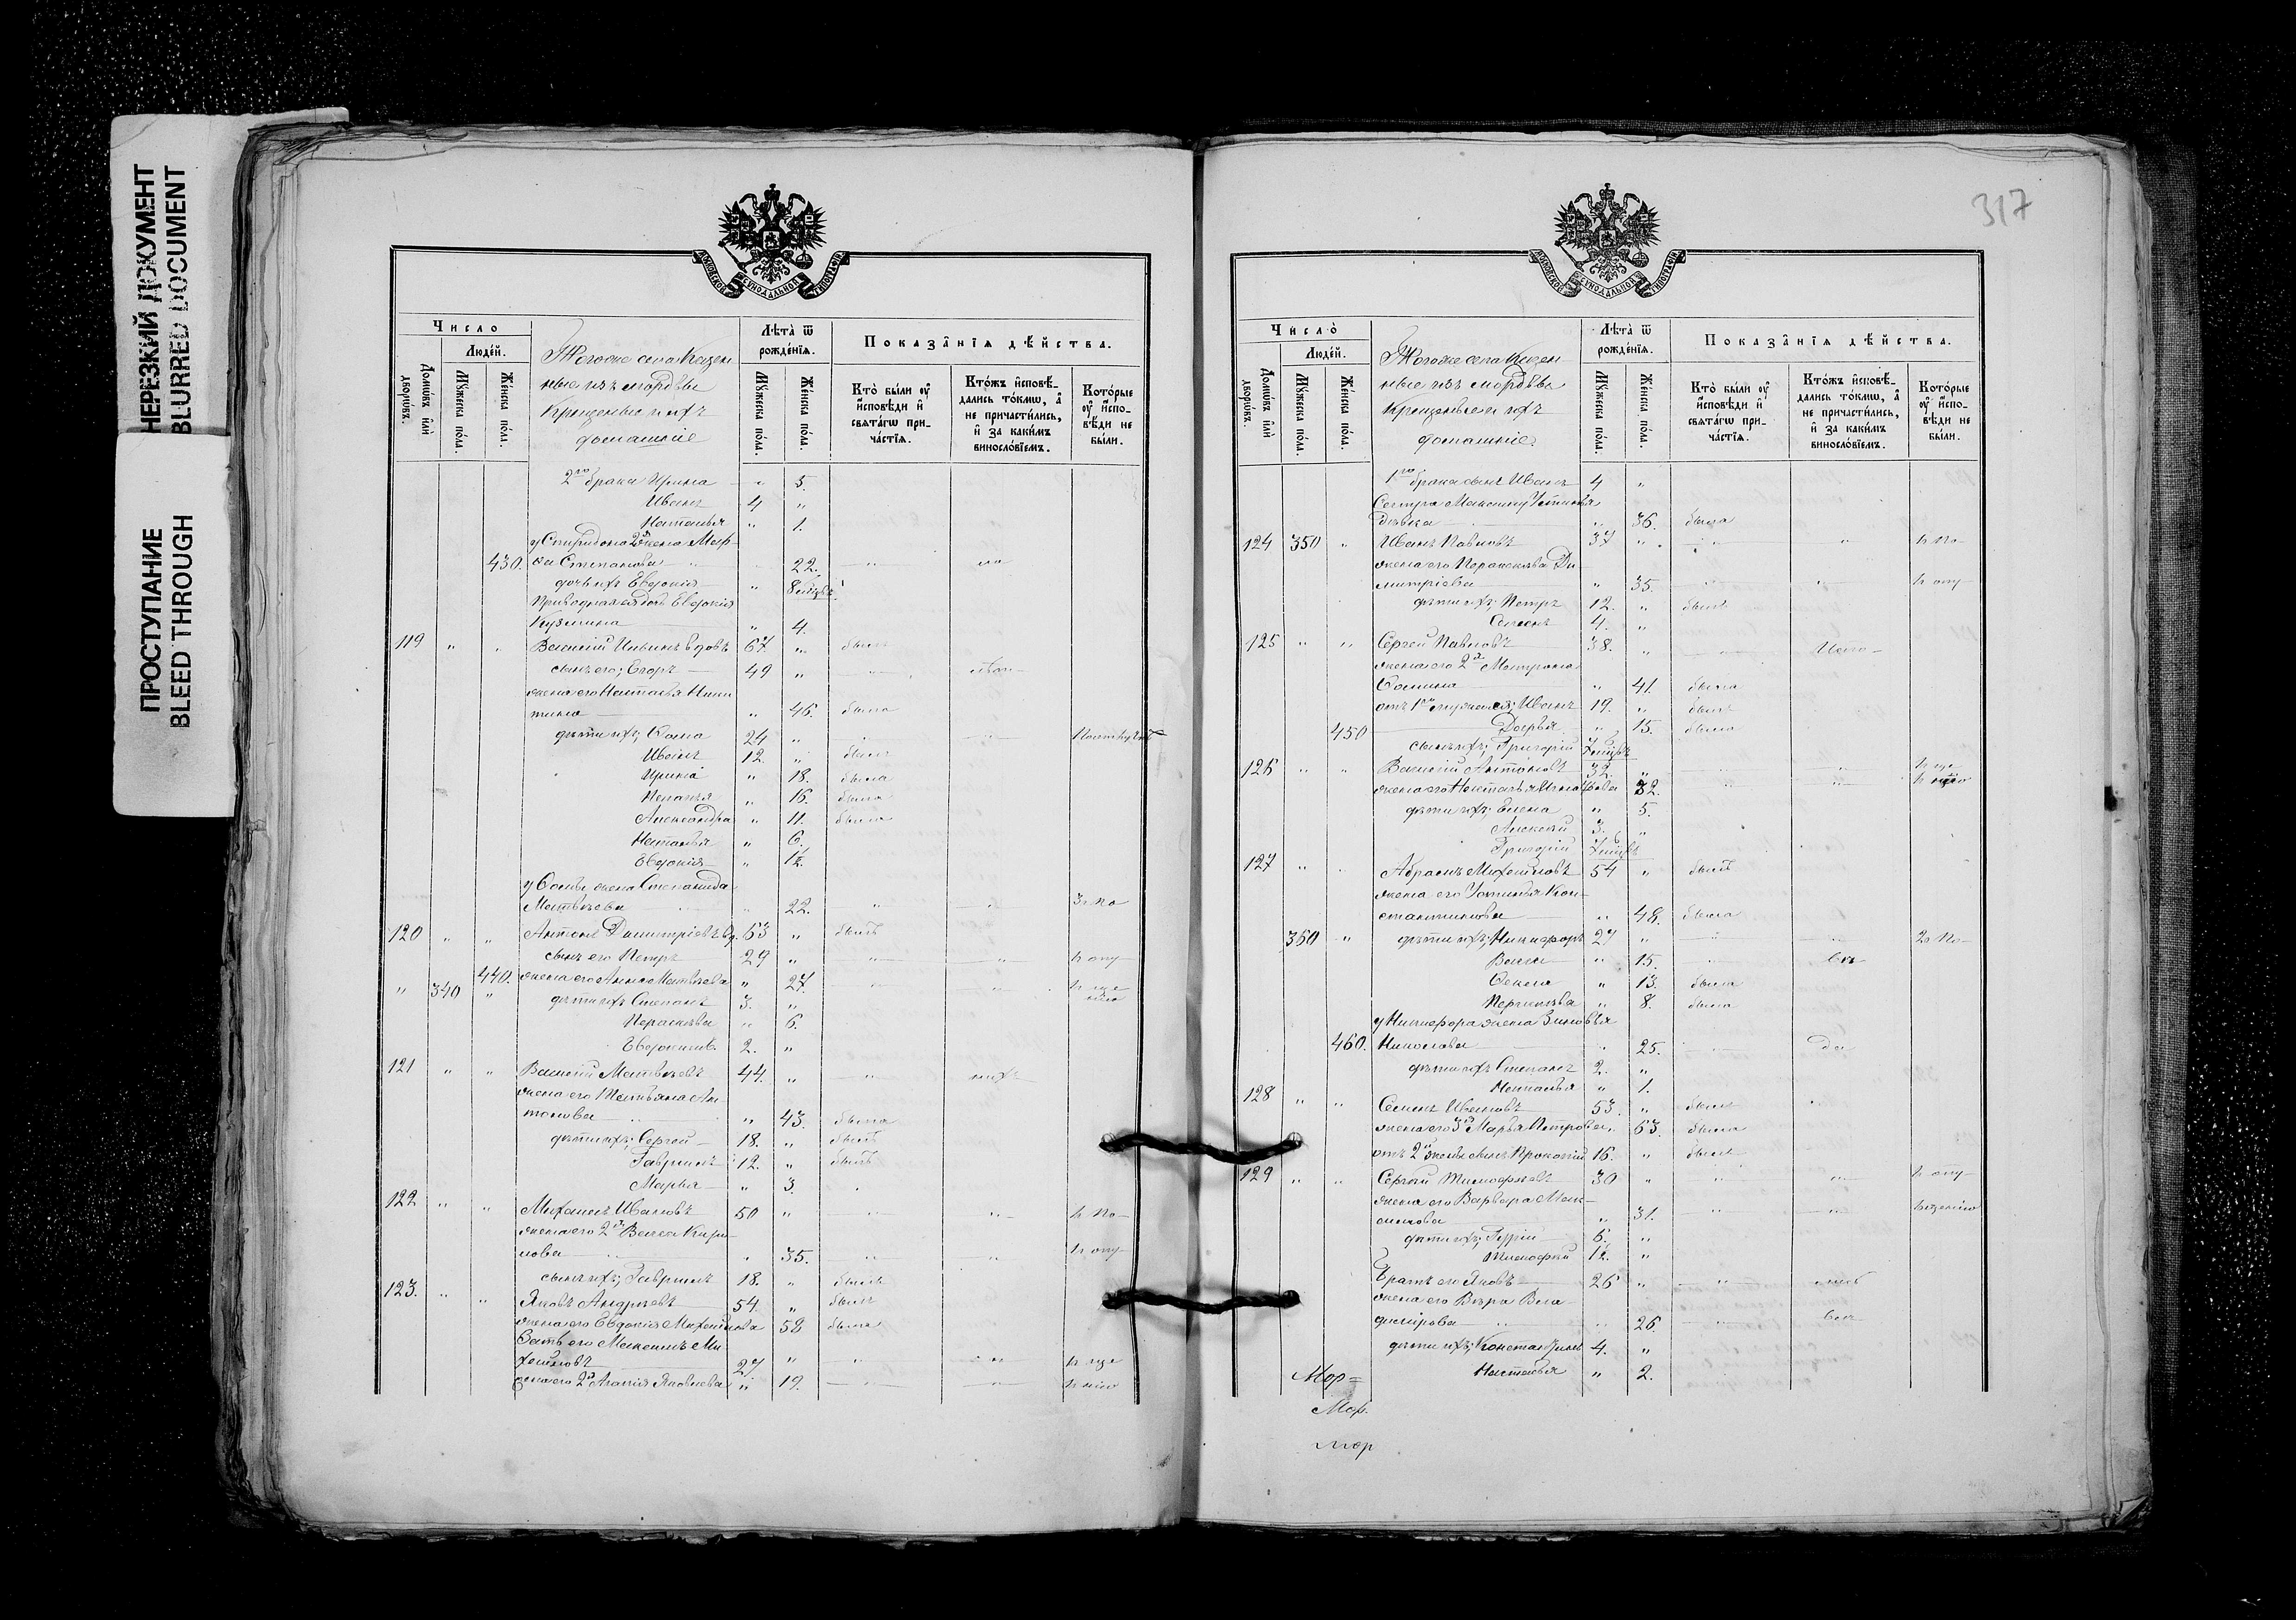 НЕРЕЗКИЙ ДОКУМЕНТ
BLURRED DOCUMENT
ПРОСТУПАНИЕ
BLEED THROUGH
МОСКОВСКОЙ СѴНОДАЛЬНОЙ ТИПОГРАФІИ
Число
Людей.
Домовъ или дворовъ.
Мужеска пола.
Женска пола.
Тогоже села Казен
ные изъ мордвы
Крещеные и ихъ
домашніе
Лѣта ѿ рожденія.
Мужеска пола.
Женска пола.
Показанія дѣйства.
Кто были оу исповѣди и свѧтагѡ причастія.
Ктожъ исповѣдались токмѡ, а не причастились, и за какимъ винословіемъ.
Которые оу исповѣди не были.
2го брака Ирина " 5.
Иванъ 4 "
Наталья " 1.
у Спиридона 2я жена Мар-
430. ѳа Степанова 22. "
дочь ихъ Евдокія " 8 мѣсяц.
Приводная дочь Евдокія
Кузьмина " 4.
119 " " Василій Ильинъ вдовъ 67. " былъ
сынъ его; Егоръ 49 " "
жена его Наталья Ники
тина " 46. была
дѣти ихъ; Ѳома 24 " " "
Иванъ 12. " былъ
Ирина " 18. была
Пелагія " 16. была
Александра " 11. была
Наталья " 6.
Евдокія " 1½
у Ѳомы жена Степанида
Матвѣева 22. " " 3. по
120 " " Антонъ Димитріевъ вд. 63 " былъ
сынъ его Петръ 29 " " " к опу
440. жена его Анна Матвѣева " 27. " "
" 340 " дѣти ихъ Степанъ 3. "
Параскева " 6.
Евдокимъ. 2. "
121 " " Василій Матвѣевъ 44. " "
жена его Татьяна Ан
тонова " 43. была
дѣти ихъ; Сергей 18. " былъ
Гавріилъ 12. " былъ
Марья " 3.
122 " " Михаилъ Ивановъ 50 " " " к по
жена его 2я Васса Кири
лова " 35. " " к опу
сынъ ихъ; Гавріилъ 18. " былъ
123. " " Яковъ Андреевъ 54. " былъ
жена его Евдокія Михайлова 58 была
Зять его Максимъ Ми
хайловъ 27. " " "
жена его 2я Агапія Яковлева " 19. " "
317
МОСКОВСКОЙ СѴНОДАЛЬНОЙ ТИПОГРАФІИ
Число
Людей.
Домовъ или дворовъ.
Мужеска пола.
Женска пола.
Тогоже села Казен
ные изъ мордвы
Крещеные и ихъ
домашніе.
Лѣта ѿ рожденія.
Мужеска пола.
Женска пола.
Показанія дѣйства.
Кто были оу исповѣди и свѧтагѡ причастія.
Ктожъ исповѣдались токмѡ, а не причастились, и за какимъ винословіемъ.
Которые оу исповѣди не были.
1го брака сынъ Иванъ 4 "
Сестра Максиму Устинья
дѣвка " 36. была
124 350 " Иванъ Павловъ 37 " " " к по
жена его Параскева Ди
митріева " 35. " " к опу
дѣти ихъ; Петръ 12. " былъ
Семенъ 4. "
125 " " Сергей Павловъ 38. " "
жена его 2я Матрона
Ѳомина " 41. была
отъ 1го мужа ея; Иванъ 19. " былъ
450 Дарья " 15. была
сынъ ихъ; Григорій
126 " " Василій Антоновъ 32. " " "
жена его Наталья Игнатьева 32. " "
дѣти ихъ; Елена " 5.
Алексей 3. "
Григорій
127 " " Абрамъ Михайловъ 54 " былъ
жена его Устинья Кон
стантинова " 48. была
360 " дѣти ихъ; Никифоръ 27 " " " 2. по
Васса " 15. "
Ѳекла " 13. была
Параскева " 8. была
у Никифора жена Зиновья
460. Николаева " 25. "
дѣти ихъ Степанъ 2. "
Наталья " 1.
128 " " Семенъ Ивановъ 53. " былъ
жена его 3я Марья Петрова " 63. была
отъ 2й жены сынъ Прокопій 16. " былъ
129 " " Сергей Тимофеевъ 30 " " " к опу
жена его Варвара Мак-
симова " 31. " "
дѣти ихъ; Гурій 6. "
Тимофей 1½. "
Братъ его Яковъ 26 " "
жена его Вѣра Вла
димірова " 26. "
дѣти ихъ; Константинъ 4. "
Наталья " 2.
Мор=
Мор.
мор